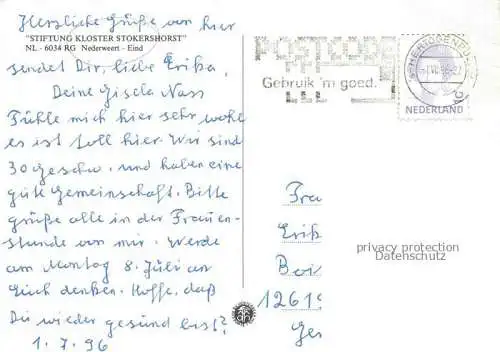 Herzliche Grüße von hier
"STIFTUNG KLOSTER STOKERSHORST"
NL.- 6034 RG Nederweert - Eind
sendet Dir, liebe Erika,
Deine Gisela Nass
Fühle mich hier sehr wohl
es ist toll hier. Wir sind
30 Geschw. und haben eine
gute Gemeinschaft. Bitte
grüße alle in der Frauen-
stunde von mir. Werde
am Montag 8. Juli an
Euch denken. Hoffe, daß
Du wieder gesund bist?
1.7.96
POSTCODE
Gebruik 'm goed.
NEDERLAND
Frau
Erika
privacy protection
Datenschutz
Ber
12619